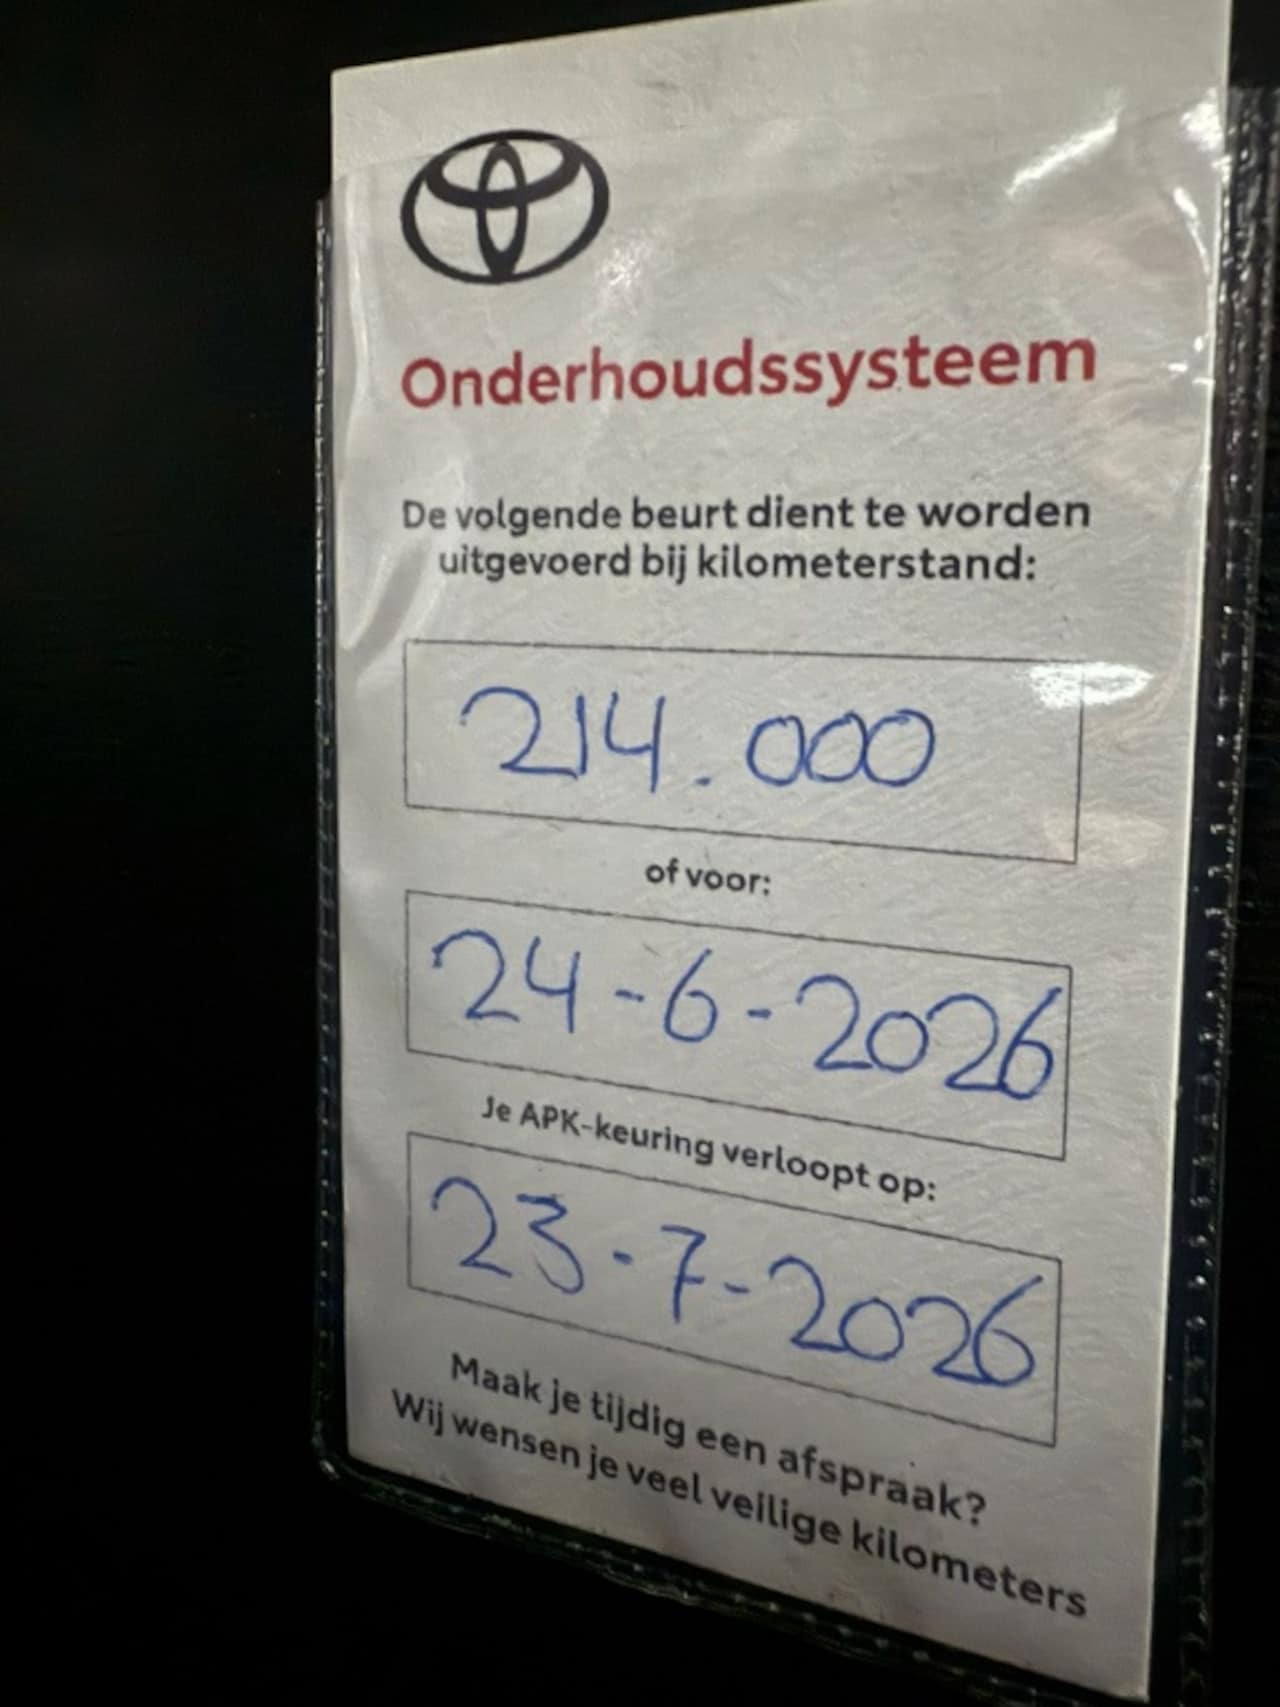 Onderhoudssysteem
De volgende beurt dient te worden
uitgevoerd bij kilometerstand:
214.000
of voor:
24-6-2026
Je APK-keuring verloopt op:
23-7-2026
Maak je tijdig een afspraak?
Wij wensen je veel veilige kilometers